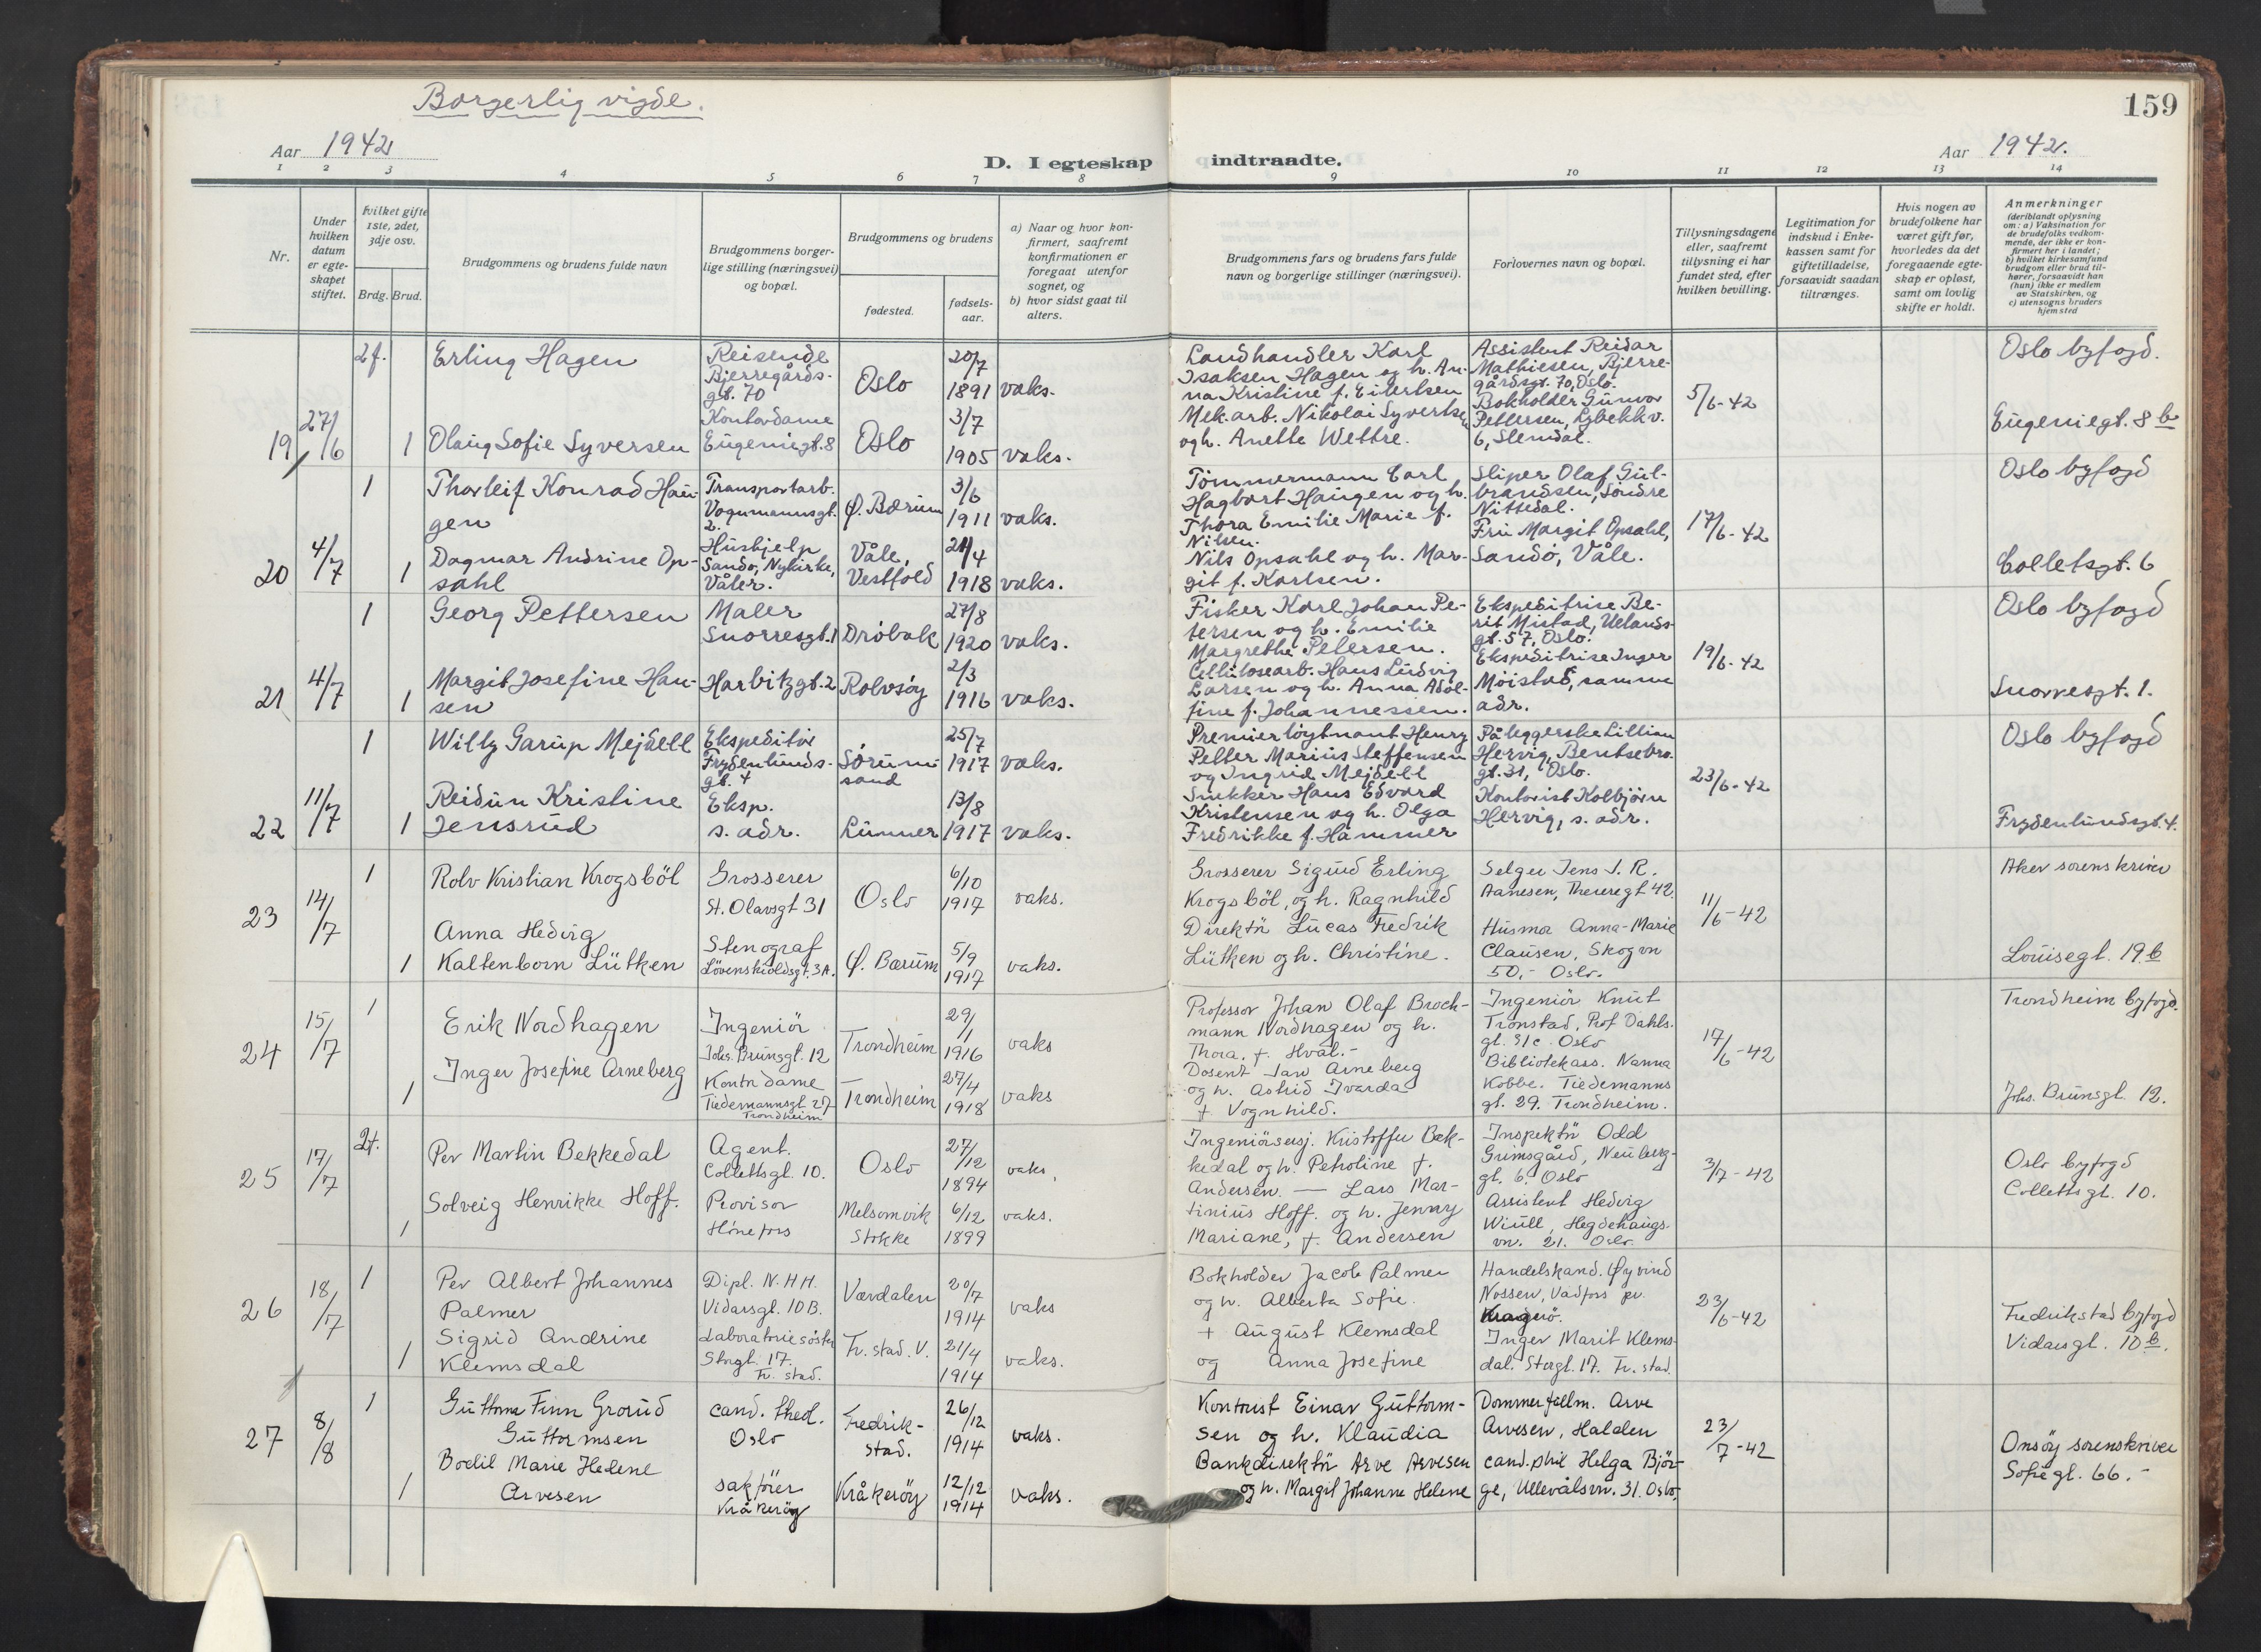 Borgerlig viede.
159
Aar 1942
D. I egteskap indtraadte.
Aar 1942.
1 2 3 4 5 6 7 8 9 10 11 12 13 14
Nr.
Under hvilken datum er egteskapet stiftet.
Hvilket gifte 1ste, 2det, 3dje osv.
Brdg. Brud.
Brudgommens og brudens fulde navn
Brudgommens borgerlige stilling (næringsvei) og bopæl.
Brudgommens og brudens
fødested.
fødselsaar.
a) Naar og hvor konfirmert, saafremt konfirmationen er foregaat utenfor sognet, og
b) hvor sidst gaat til alters.
Brudgommens fars og brudens fars fulde navn og borgerlige stillinger (næringsvei).
Forlovernes navn og bopæl.
Tillysningsdagene eller, saafremt tillysning ei har fundet sted, efter hvilken bevilling.
Legitimation for indskud i Enkekassen samt for giftetilladelse, forsaavidt saadan tiltrænges.
Hvis nogen av brudefolkene har været gift før, hvorledes da det foregaaende egteskap er opløst, samt om lovlig skifte er holdt.
Anmerkninger
(deriblandt oplysning om: a) Vaksination for de brudefolks vedkommende, der ikke er konfirmert her i landet; b) hvilket kirkesamfund brudgom eller brud tilhører, forsaavidt han (hun) ikke er medlem av Statskirken, og c) utensogns bruders hjemsted
19
27/6
2f.
Erling Hagen
Reisende
Bjerregårds-
gt. 70
Oslo
20/7
1891
vaks.
1
Olaug Sofie Syversen
Kontordame
Eugeniegt. 8
Oslo
3/7
1905
vaks.
Landhandler Karl
Isaksen Hagen og h. An-
na Kristine f. Eilertsen
Mek. arb. Nikolai Syvertsen
og h. Anette Wettre.
Assistent Reidar
Mathiesen, Bjerre-
gårdsgt. 70, Oslo.
Bokholder Gunvor
Pettersen, Lybekkv.
6, Slemdal.
5/6-42
Oslo byfogd.
Eugeniegt. 8 b
20
4/7
1
Thorleif Konrad Hau-
gen
Transportarb.
Vognmannsgt.
2.
Ø. Bærum
3/6
1911
vaks.
1
Dagmar Andrine Op-
sahl
Husbjelp
Sandø, Nykirke,
Våler.
Våle,
Vestfold
21/4
1918
vaks.
Tömmermann Carl
Hagbart Haugen og h.
Thora Emilie Marie f.
Nilsen.
Nils Opsahl og h. Mar-
git f. Karlsen.
Sliper Olaf Gul-
brandsen, Söndre
Nittedal.
Fru Margit Opsahl,
Sandö, Våle.
17/6-42
Oslo byfogd
Colletsgt. 6
21
4/7
1
Georg Pettersen
Maler
Snorresgt. 1
Dröbak
27/8
1920
vaks.
1
Margit Josefine Han-
sen
Harbitzgt. 2
Rolvsöy
2/3
1916
vaks.
Fisker Karl Johan Pe-
tersen og h. Emilie
Margrethe Petersen.
Cellulosearb. Hans Ludvig
Larsen og h. Anna Adol-
fine f. Johannessen.
Ekspeditrise Be-
rit Mistad, Uelands-
gt. 57, Oslo.
Ekspeditrise Inger
Möistad, samme
adr.
19/6-42
Oslo byfogd
Snorresgt. 1.
22
11/7
1
Willy Garup Mejdell
Ekspeditör
Frydenlunds-
gt. 4
Sörum-
sand
25/7
1917
vaks.
1
Reidun Kristine
Jensrud
Eksp.
s. adr.
Lunner
13/8
1917
vaks.
Premierlöytnant Henry
Petter Marius Steffensen
og Ingrid Mejdell
Snekker Hans Edvard
Kristensen og h. Olga
Fredrikke f. Hammer
Påleggerske Lillian
Hervig, Bentsebro.
gt. 31, Oslo.
Kontorist Kolbjörn
Hervig, s. adr.
23/6-42
Oslo byfogd
Frydenlundsgt. 4.
23
14/7
1
Rolv Kristian Krogsböl
Grosserer
St. Olavsgt 31
Oslo
6/10
1917
vaks.
1
Anna Hedvig
Kaltenborn Lütken
Stenograf
Lövenskioldsgt. 3A.
Ø. Bærum
5/9
1917
vaks.
Grosserer Sigurd Erling
Krogsböl, og h. Ragnhild
Direktör Lucas Fredrik
Lütken og h. Christine.
Selger Jens J. R.
Aanesen, Theresegt 42.
Husmor Anna-Marie
Clausen, Skogvn
50,- Oslo.
11/6-42
Aker sorenskriver
Louisegt. 19 b
24
15/7
1
Erik Nordhagen
Ingeniör
Johs. Brunsgt. 12
Trondheim
29/1
1916
vaks
1
Inger Josefine Arneberg
Kontordame
Tiedemannsgt. 27
Trondheim
Trondheim
27/4
1918
vaks
Professor Johan Olaf Broch-
mann Nordhagen og h.
Thora, f. Hval.-
Dosent Jan Arneberg
og h. Astrid Ivarda
f Vognhild.
Ingeniör Knut
Tronstad, Prof Dahls.
gt. 31c Oslo
Bibliotekass. Nanna
Kobbe. Tiedemanns
gt. 29. Trondheim.
17/6-42
Trondheim byfogd.
Johs. Brunsgt. 12.
25
17/7
2f.
Per Martin Bekkedal
Agent.
Collettsgt. 10.
Oslo
27/12
1894
vaks.
1
Solveig Henrikke Hoff.
Provisor
Hönefoss
Melsomvik
Stokke
6/12
1899
vaks.
Ingeniörsersj. Kristoffer Bek-
kedal og h. Petroline f.
Andersen. — Lars Mar-
tinius Hoff. og h. Jenny
Mariane, f. Andersen
Inspektör Odd
Grimsgård, Neuberg-
gt. 6. Oslo
Assistent Hedvig
Wiull, Hegdehaugs-
vn. 21. Oslo.
3/7-42
Oslo byfogd
Collettsgt. 10.
26
18/7
1
Per Albert Johannes
Palmer
Dipl. N.H.H.
Vidarsgt. 10 B.
Værdalen
20/7
1914
vaks
1
Sigrid Andrine
Klemsdal
Laboratoriesöster
Storgt. 17.
Fr. stad.
Fr. stad. V.
21/4
1914
vaks.
Bokholder Jacob Palmer
og h. Alberta Sofie.
+ August Klemsdal
og Anna Josefine
Handelskand. Øyvind
Nossen, Vadfoss pr.
Kragerö.
Inger Marit Klems-
dal. Storgt. 17. Fr. stad.
23/6-42
Fredrikstad byfogd
Vidarsgt. 10 b.
27
8/8
1
Guttorm Finn Grorud
Guttormsen
cand. theol.
Oslo
Fredrik-
stad.
26/12
1914
vaks.
1
Bodil Marie Helene
Arvesen
sakförer
Kråkeröy
Kråkeröy
12/12
1914
vaks.
Kontorist Einar Guttorm-
sen og h. Klaudia
Bankdirektör Arve Arvesen
og h. Margit Johanne Helene
Dommerfullm. Arve
Arvesen, Halden
cand. phil Helga Björ-
ge, Ullevålsvn. 31. Oslo,
23/7-42
Onsöy sorenskriver
Sofiegt. 66.-